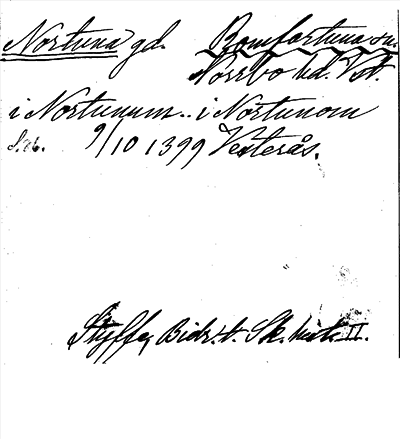 Nortuna gd. Romfartuna sn.
Norrbo hd. Vstl.
i Nortunum.. i Nortunom
9/10 1399 Vesterås.
Styffe, Bidr. t. Sk. hist. II.